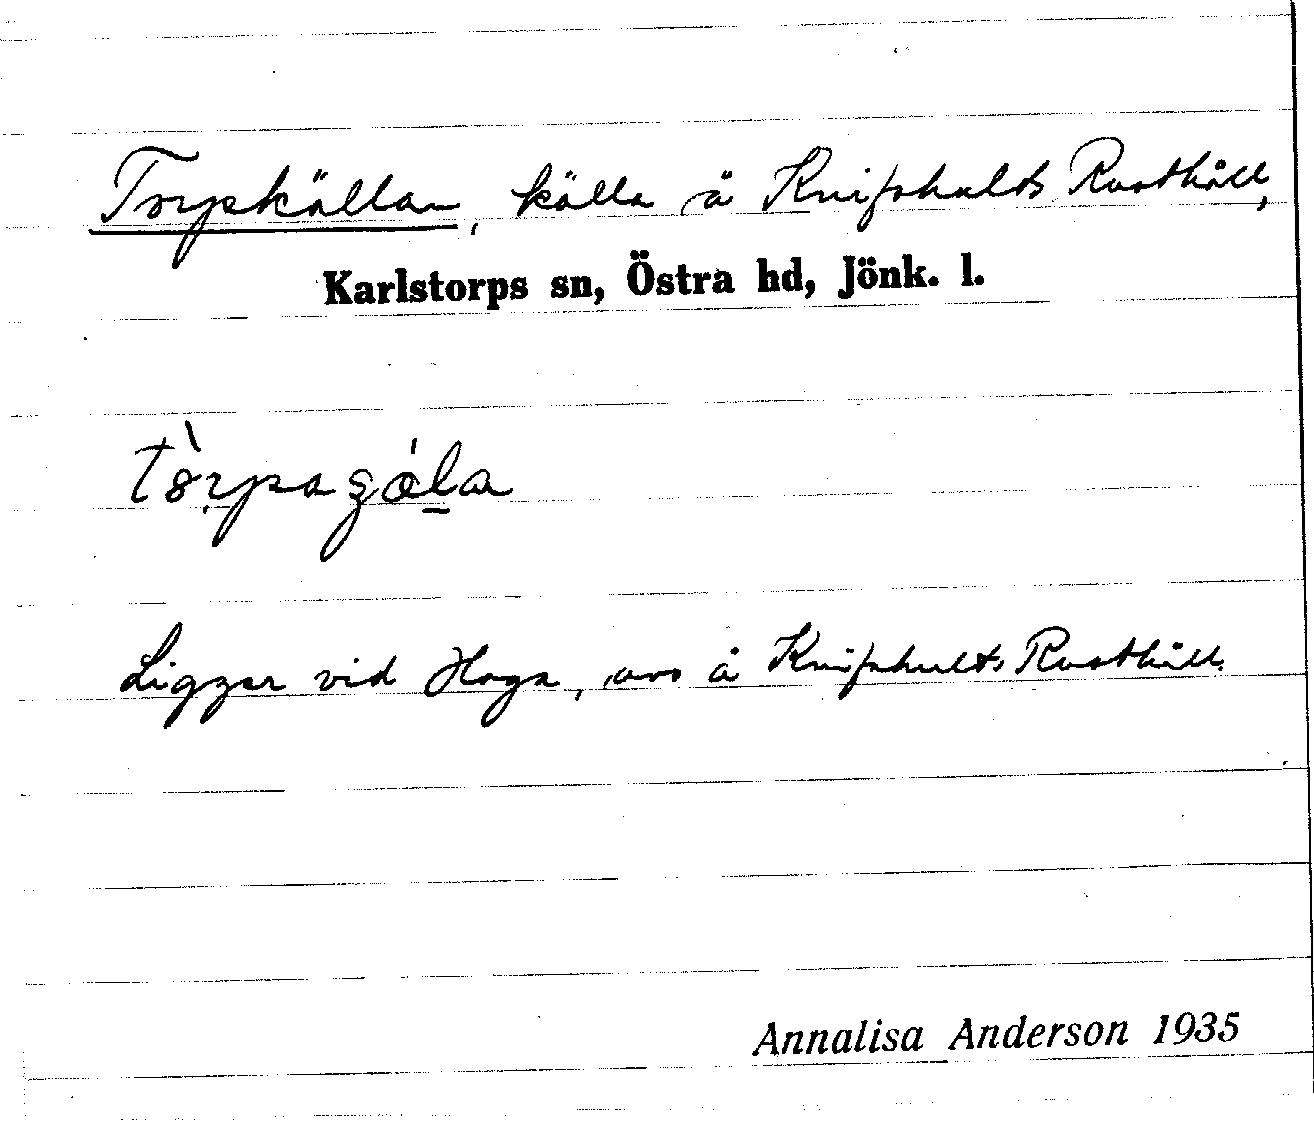 Torpkällan, källa å Knifshults Rusthåll,
Karlstorps sn, Östra hd, Jönk. l.
Ligger vid Haga, avs å Knifshults Rusthåll.
Annalisa Anderson 1935